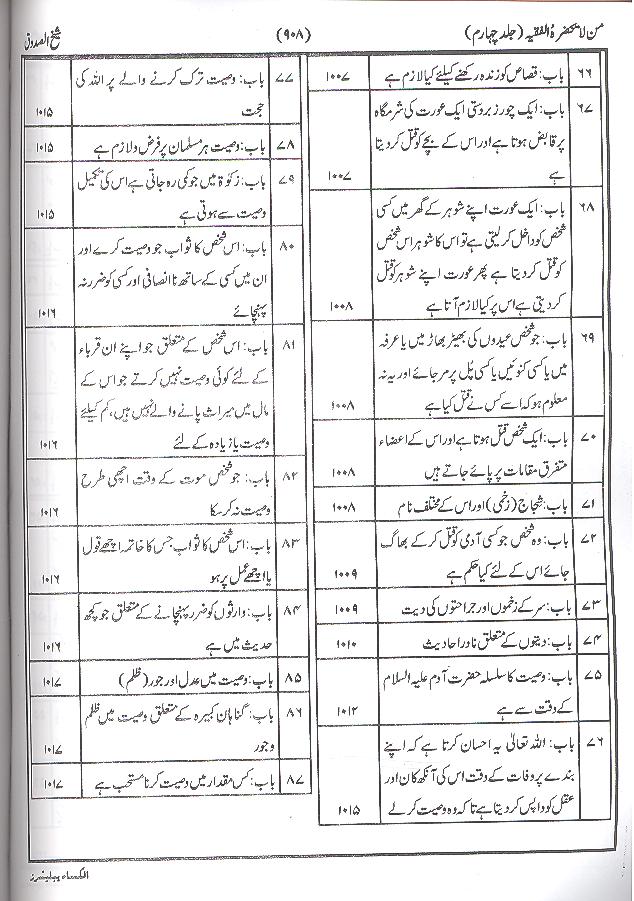 من لا یحضرہ الفقیہ (جلد چہارم)
(۹۰۸)
شیخ الصدوق
۶۶ باب: قصاص کو زندہ رکھنے کیلئے کیا لازم ہے ۱۰۰۷
۶۷ باب: ایک چور زبردستی ایک عورت کی شرمگاہ
پر قابض ہوتا ہے اور اس کے بچے کو قتل کر دیتا
ہے ۱۰۰۷
۶۸ باب: ایک عورت اپنے شوہر کے گھر میں کسی
شخص کو داخل کر لیتی ہے تو اس کا شوہر اس شخص
کو قتل کر دیتا ہے پھر عورت اپنے شوہر کو قتل
کر دیتی ہے اس پر کیا لازم آتا ہے ۱۰۰۸
۶۹ باب: جو شخص عیدوں کی بھیڑ بھاڑ میں یا عرفہ
میں یا کسی کنوئیں یا کسی پل پر مر جائے اور یہ نہ
معلوم ہو کہ اسے کس نے قتل کیا ہے ۱۰۰۸
۷۰ باب: ایک شخص قتل ہوتا ہے اور اس کے اعضاء
متفرق مقامات پر پائے جاتے ہیں ۱۰۰۸
۷۱ باب: شجاج (زخمی) اور اس کے مختلف نام ۱۰۰۸
۷۲ باب: وہ شخص جو کسی آدمی کو قتل کر کے بھاگ
جائے اس کے لئے کیا حکم ہے ۱۰۰۹
۷۳ باب: سر کے زخموں اور جراحتوں کی دیت ۱۰۰۹
۷۴ باب: دیتوں کے متعلق نادر احادیث ۱۰۱۰
۷۵ باب: وصیت کا سلسلہ حضرت آدم علیہ السلام
کے وقت سے ہے ۱۰۱۲
۷۶ باب: اللہ تعالیٰ یہ احسان کرتا ہے کہ اپنے
بندے پر وفات کے وقت اس کی آنکھ کان اور
عقل کو واپس کر دیتا ہے تاکہ وہ وصیت کر لے ۱۰۱۵
۷۷ باب: وصیت ترک کرنے والے پر اللہ کی
حجت ۱۰۱۵
۷۸ باب: وصیت ہر مسلمان پر فرض و لازم ہے ۱۰۱۵
۷۹ باب: زکوٰۃ میں جو کمی رہ جاتی ہے اس کی تکمیل
وصیت سے ہوتی ہے ۱۰۱۵
۸۰ باب: اس شخص کا ثواب جو وصیت کرے اور
ان میں کسی کے ساتھ نا انصافی اور کسی کو ضرر نہ
پہنچائے ۱۰۱۶
۸۱ باب: اس شخص کے متعلق جو اپنے ان قرباء
کے لئے کوئی وصیت نہیں کرتے جو اس کے
مال میں میراث پانے والے نہیں ہیں، کم کیلئے
وصیت یا زیادہ کے لئے ۱۰۱۶
۸۲ باب: جو شخص موت کے وقت اچھی طرح
وصیت نہ کر سکا ۱۰۱۶
۸۳ باب: اس شخص کا ثواب جس کا خاتمہ اچھے قول
یا اچھے عمل پر ہو ۱۰۱۶
۸۴ باب: وارثوں کو ضرر پہنچانے کے متعلق جو کچھ
حدیث میں ہے ۱۰۱۶
۸۵ باب: وصیت میں عدل اور جور (ظلم) ۱۰۱۷
۸۶ باب: گناہان کبیرہ کے متعلق وصیت میں ظلم
و جور ۱۰۱۷
۸۷ باب: کس مقدار میں وصیت کرنا مستحب ہے ۱۰۱۷
الکساء پبلیشرز